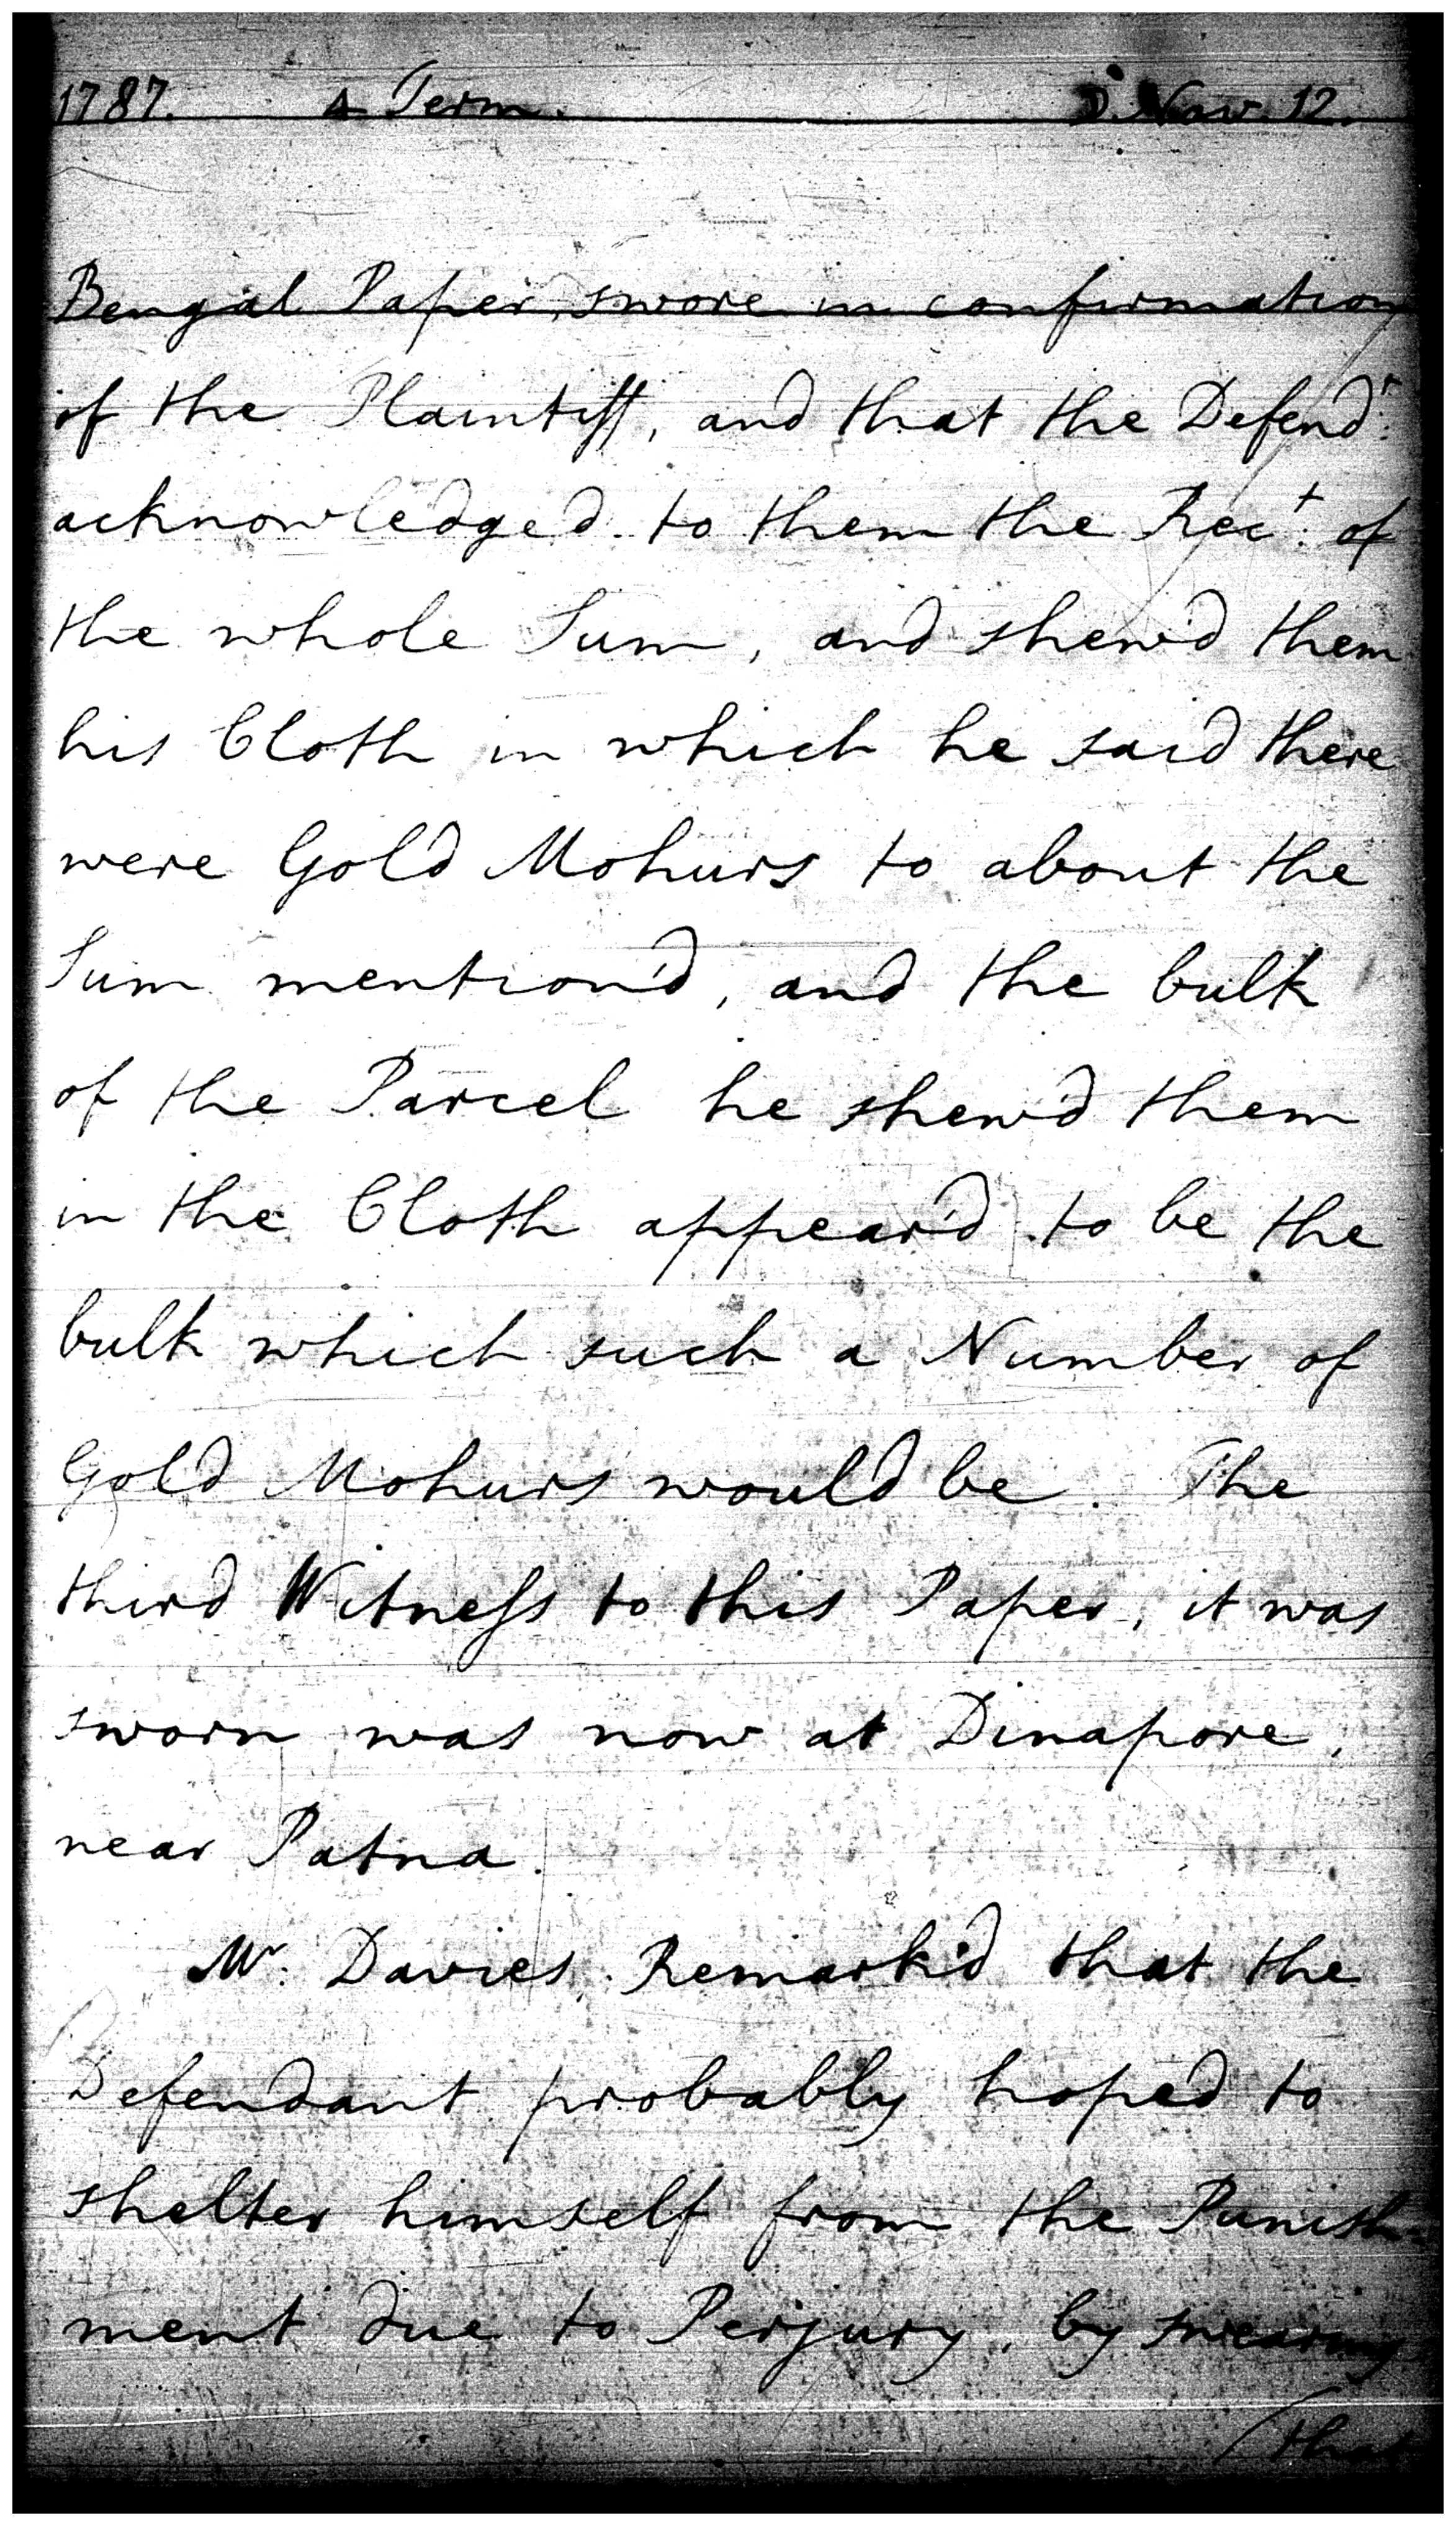 1787. 4 Term. D. Nov. 12.
Bengal Paper, swore in confirmation
of the Plaintiff, and that the Defend.t
acknowledged to them the Rec.t of
the whole Sum, and shew'd them
his Cloth in which he said there
were Gold Mohurs to about the
Sum mention'd, and the bulk
of the Parcel he shew'd them
in the Cloth appear'd to be the
bulk which such a Number of
Gold Mohurs would be. The
third Witness to this Paper, it was
sworn was now at Dinapore,
near Patna.
Mr. Davies. Remark'd that the
Defendant probably hoped to
shelter himself from the Punish
ment due to Perjury, by swearing
(that